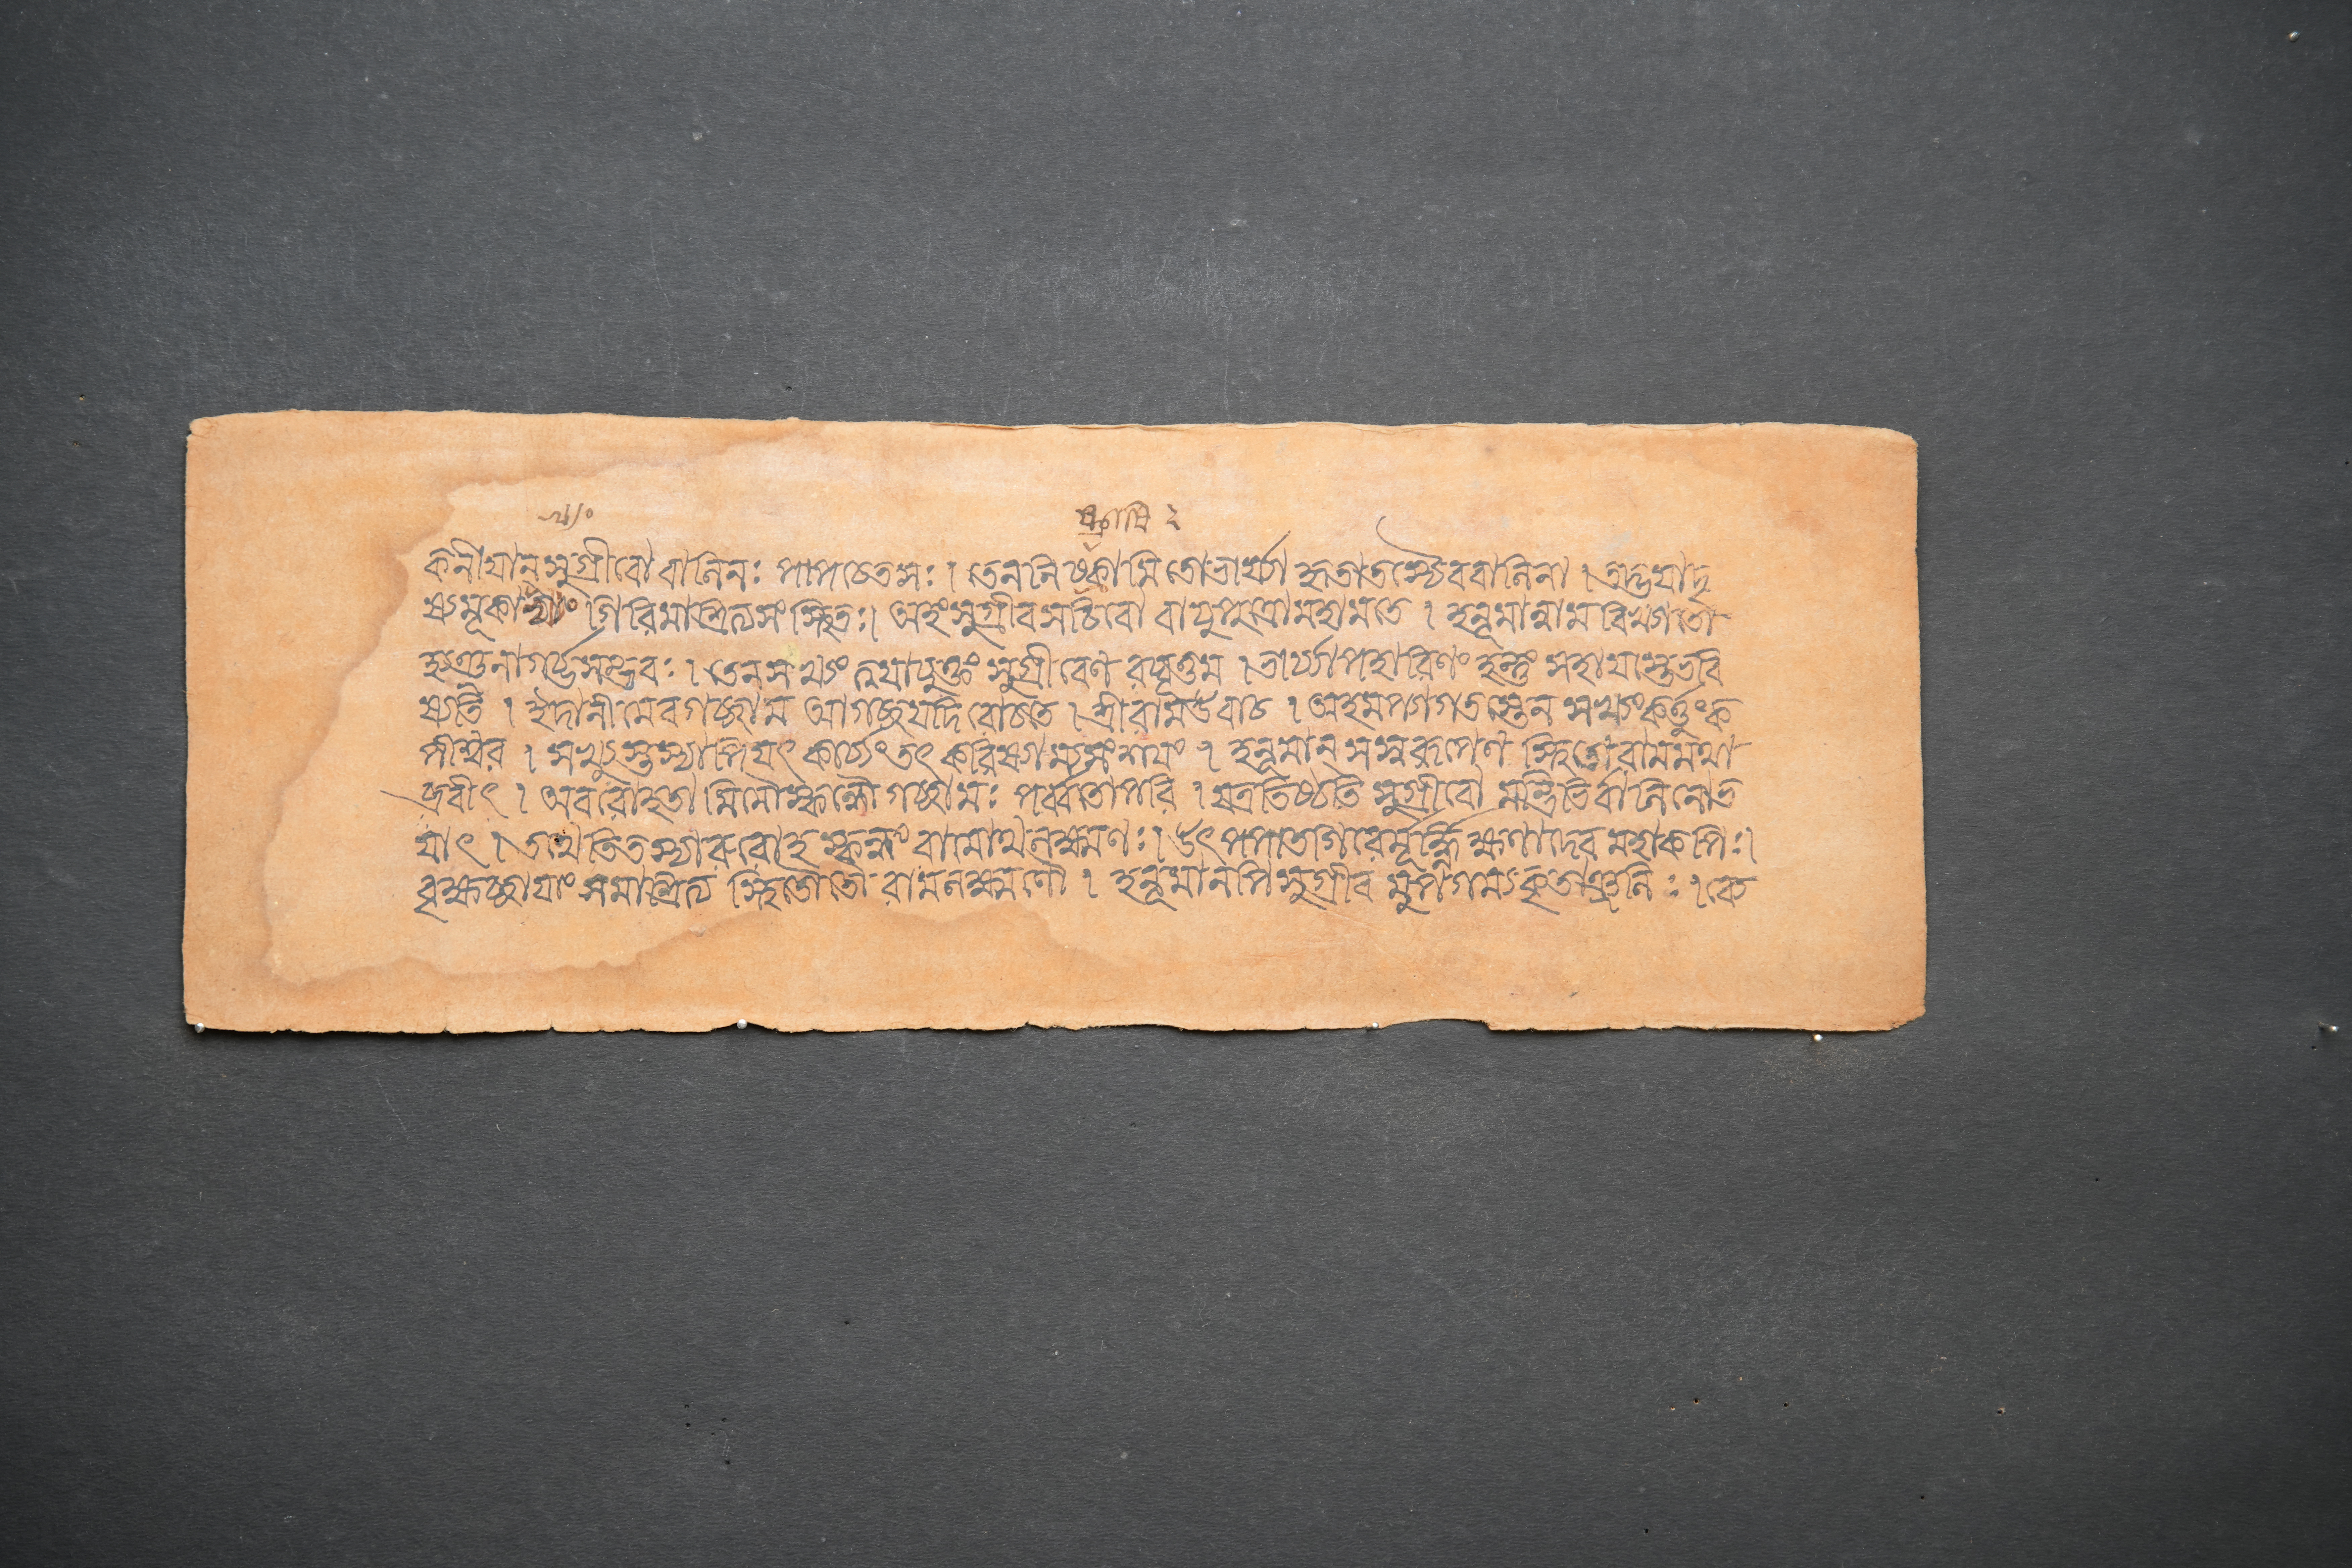 কনীয়ান্সুগ্রীবো বালিনঃ পাপচেতসঃ । তেননিষ্কাসিতোভার্য্যা হৃতাতস্যৈববালিনা । তদ্ভয়াদৃ
ষ্যমূকাখ্যং গিরিমাশ্রিত্যসংস্থিতঃ। অহংসুগ্রীবসচিবো বায়ুপুত্রোমহামতে । হনূমান্নাম বিখ্যাতো
হ্যঞ্জনাগর্ভ্ভসম্ভবঃ । তেনসখ্যং ত্বয়াযুক্তং সুগ্রীবেণ রঘূত্তম । ভার্য্যাপহারিণং হন্তুং সহায়াস্তেভবি
ষ্যতি । ইদানীমেবগচ্ছাম আগচ্ছযদিরোচতে । শ্রীরামউবাচ । অহমপ্যাগতস্তেন সখ্যংকর্ত্তুংক
পীশ্বর । সখ্যুস্তস্যাপিযৎ কার্য্যংতৎ করিষ্যাম্যসংশয়ং । হনূমান্ স্বস্বরূপেণ স্থিতোরামমথা
ব্রবীৎ । অবরোহতা মিমৌস্কন্ধৌগচ্ছামঃ পর্ব্বতোপরি । যত্রতিষ্ঠতি সুগ্রীবো মন্ত্রিভির্বালিনোভ
য়াৎ । তথেতিতস্যারুরোহ স্কন্ধং রামোথলক্ষ্মণঃ । উৎপপাতগিরের্মূর্দ্ধ্নি ক্ষণাদেব মহাকপিঃ ।
বৃক্ষচ্ছায়াং সমাশ্রিত্য স্থিতৌতৌ রামলক্ষ্মণৌ । হনূমানপিসুগ্রীব মুপগম্যকৃতাঞ্জলিঃ । ব্যে